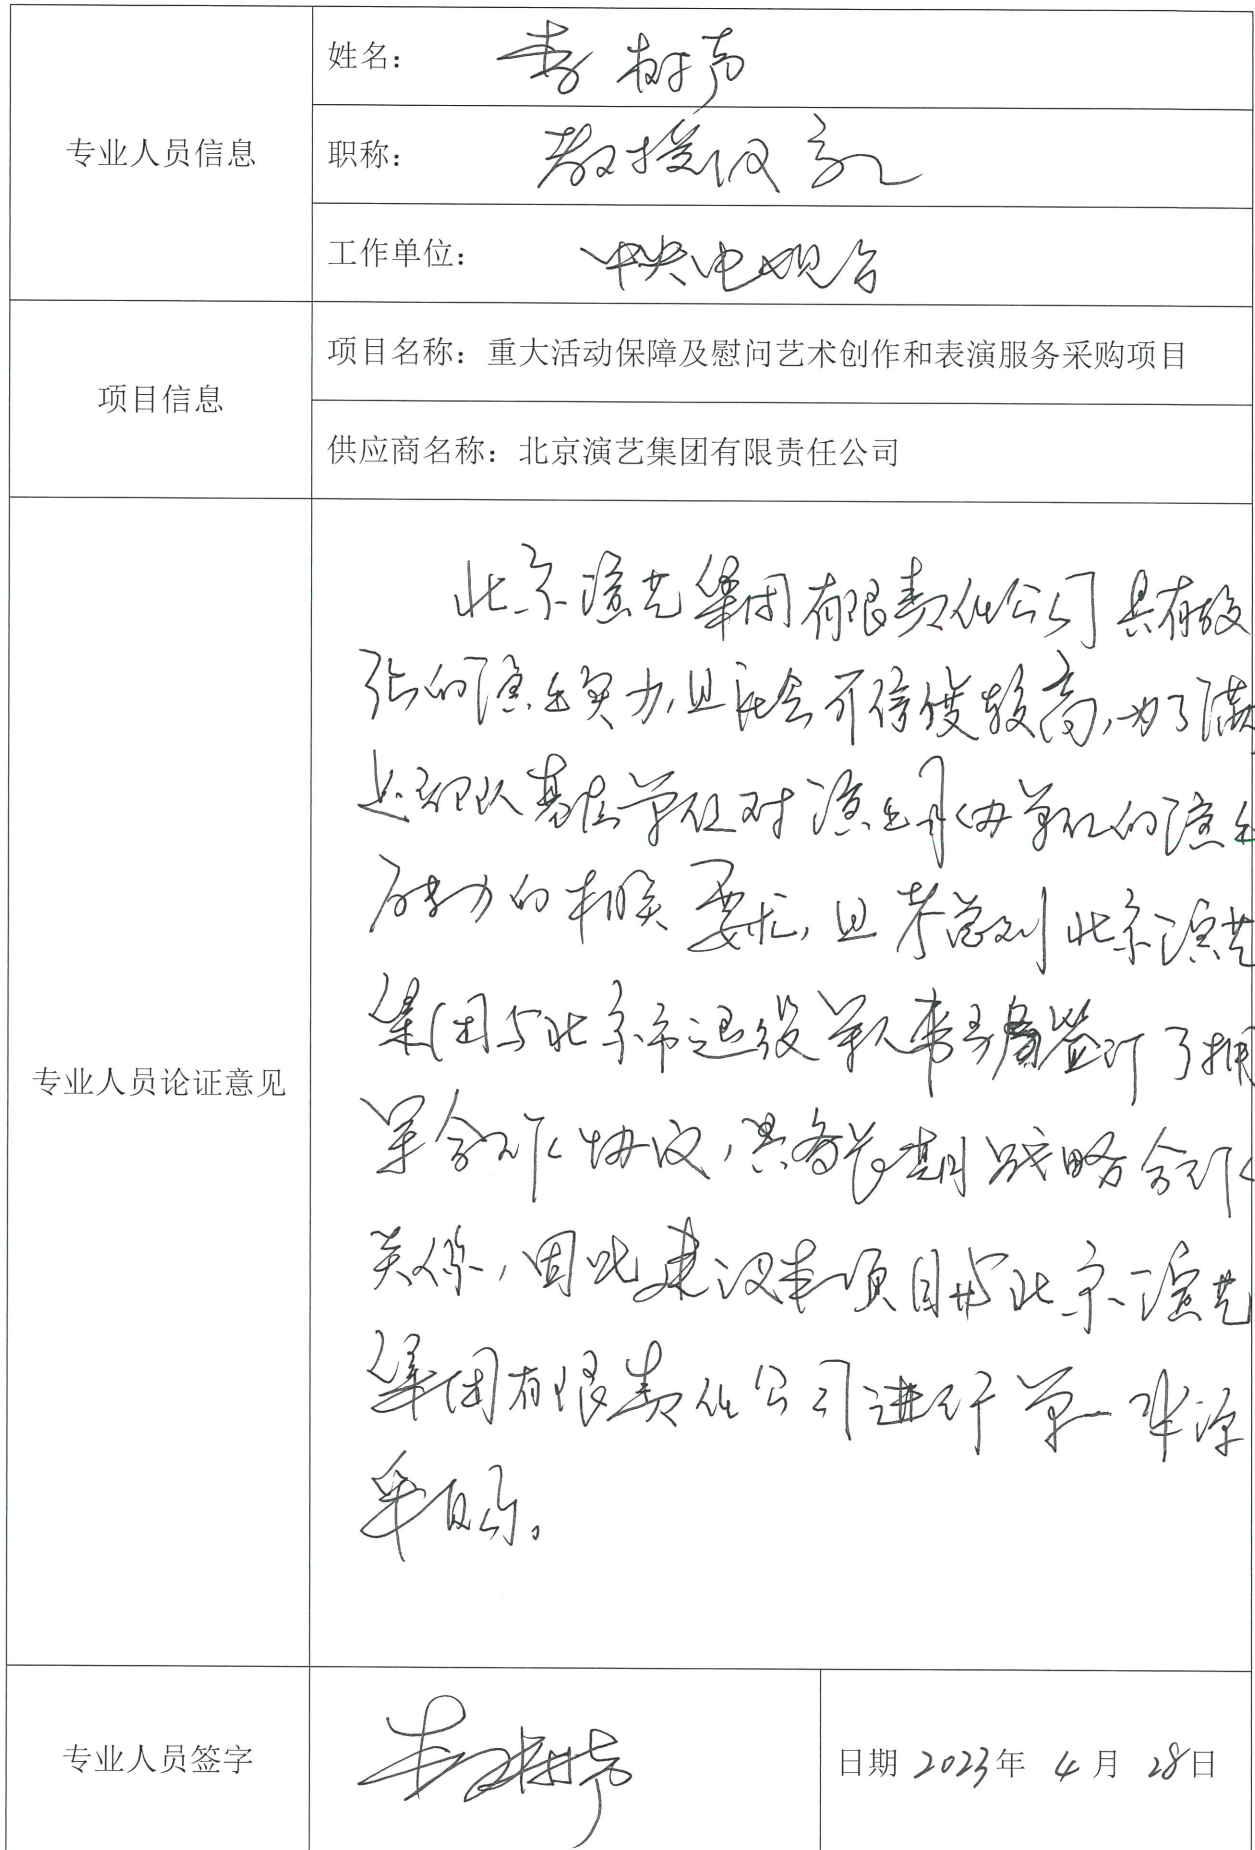 专业人员信息
姓名：李树声
职称：教授级高工
工作单位：中央电视台
项目信息
项目名称：重大活动保障及慰问艺术创作和表演服务采购项目
供应商名称：北京演艺集团有限责任公司
专业人员论证意见
北京演艺集团有限责任公司具有较
强的演出实力,且社会可信度较高,为了满
足部队基层单位对演出服务单位的演出
能力的相关要求,且考虑到北京演艺
集团与北京市退役军人事务局签订了拥
军合作协议,具备长期战略合作
关系,因此建议本项目与北京演艺
集团有限责任公司进行单一来源
采购。
专业人员签字
日期 2023年 4月 28日